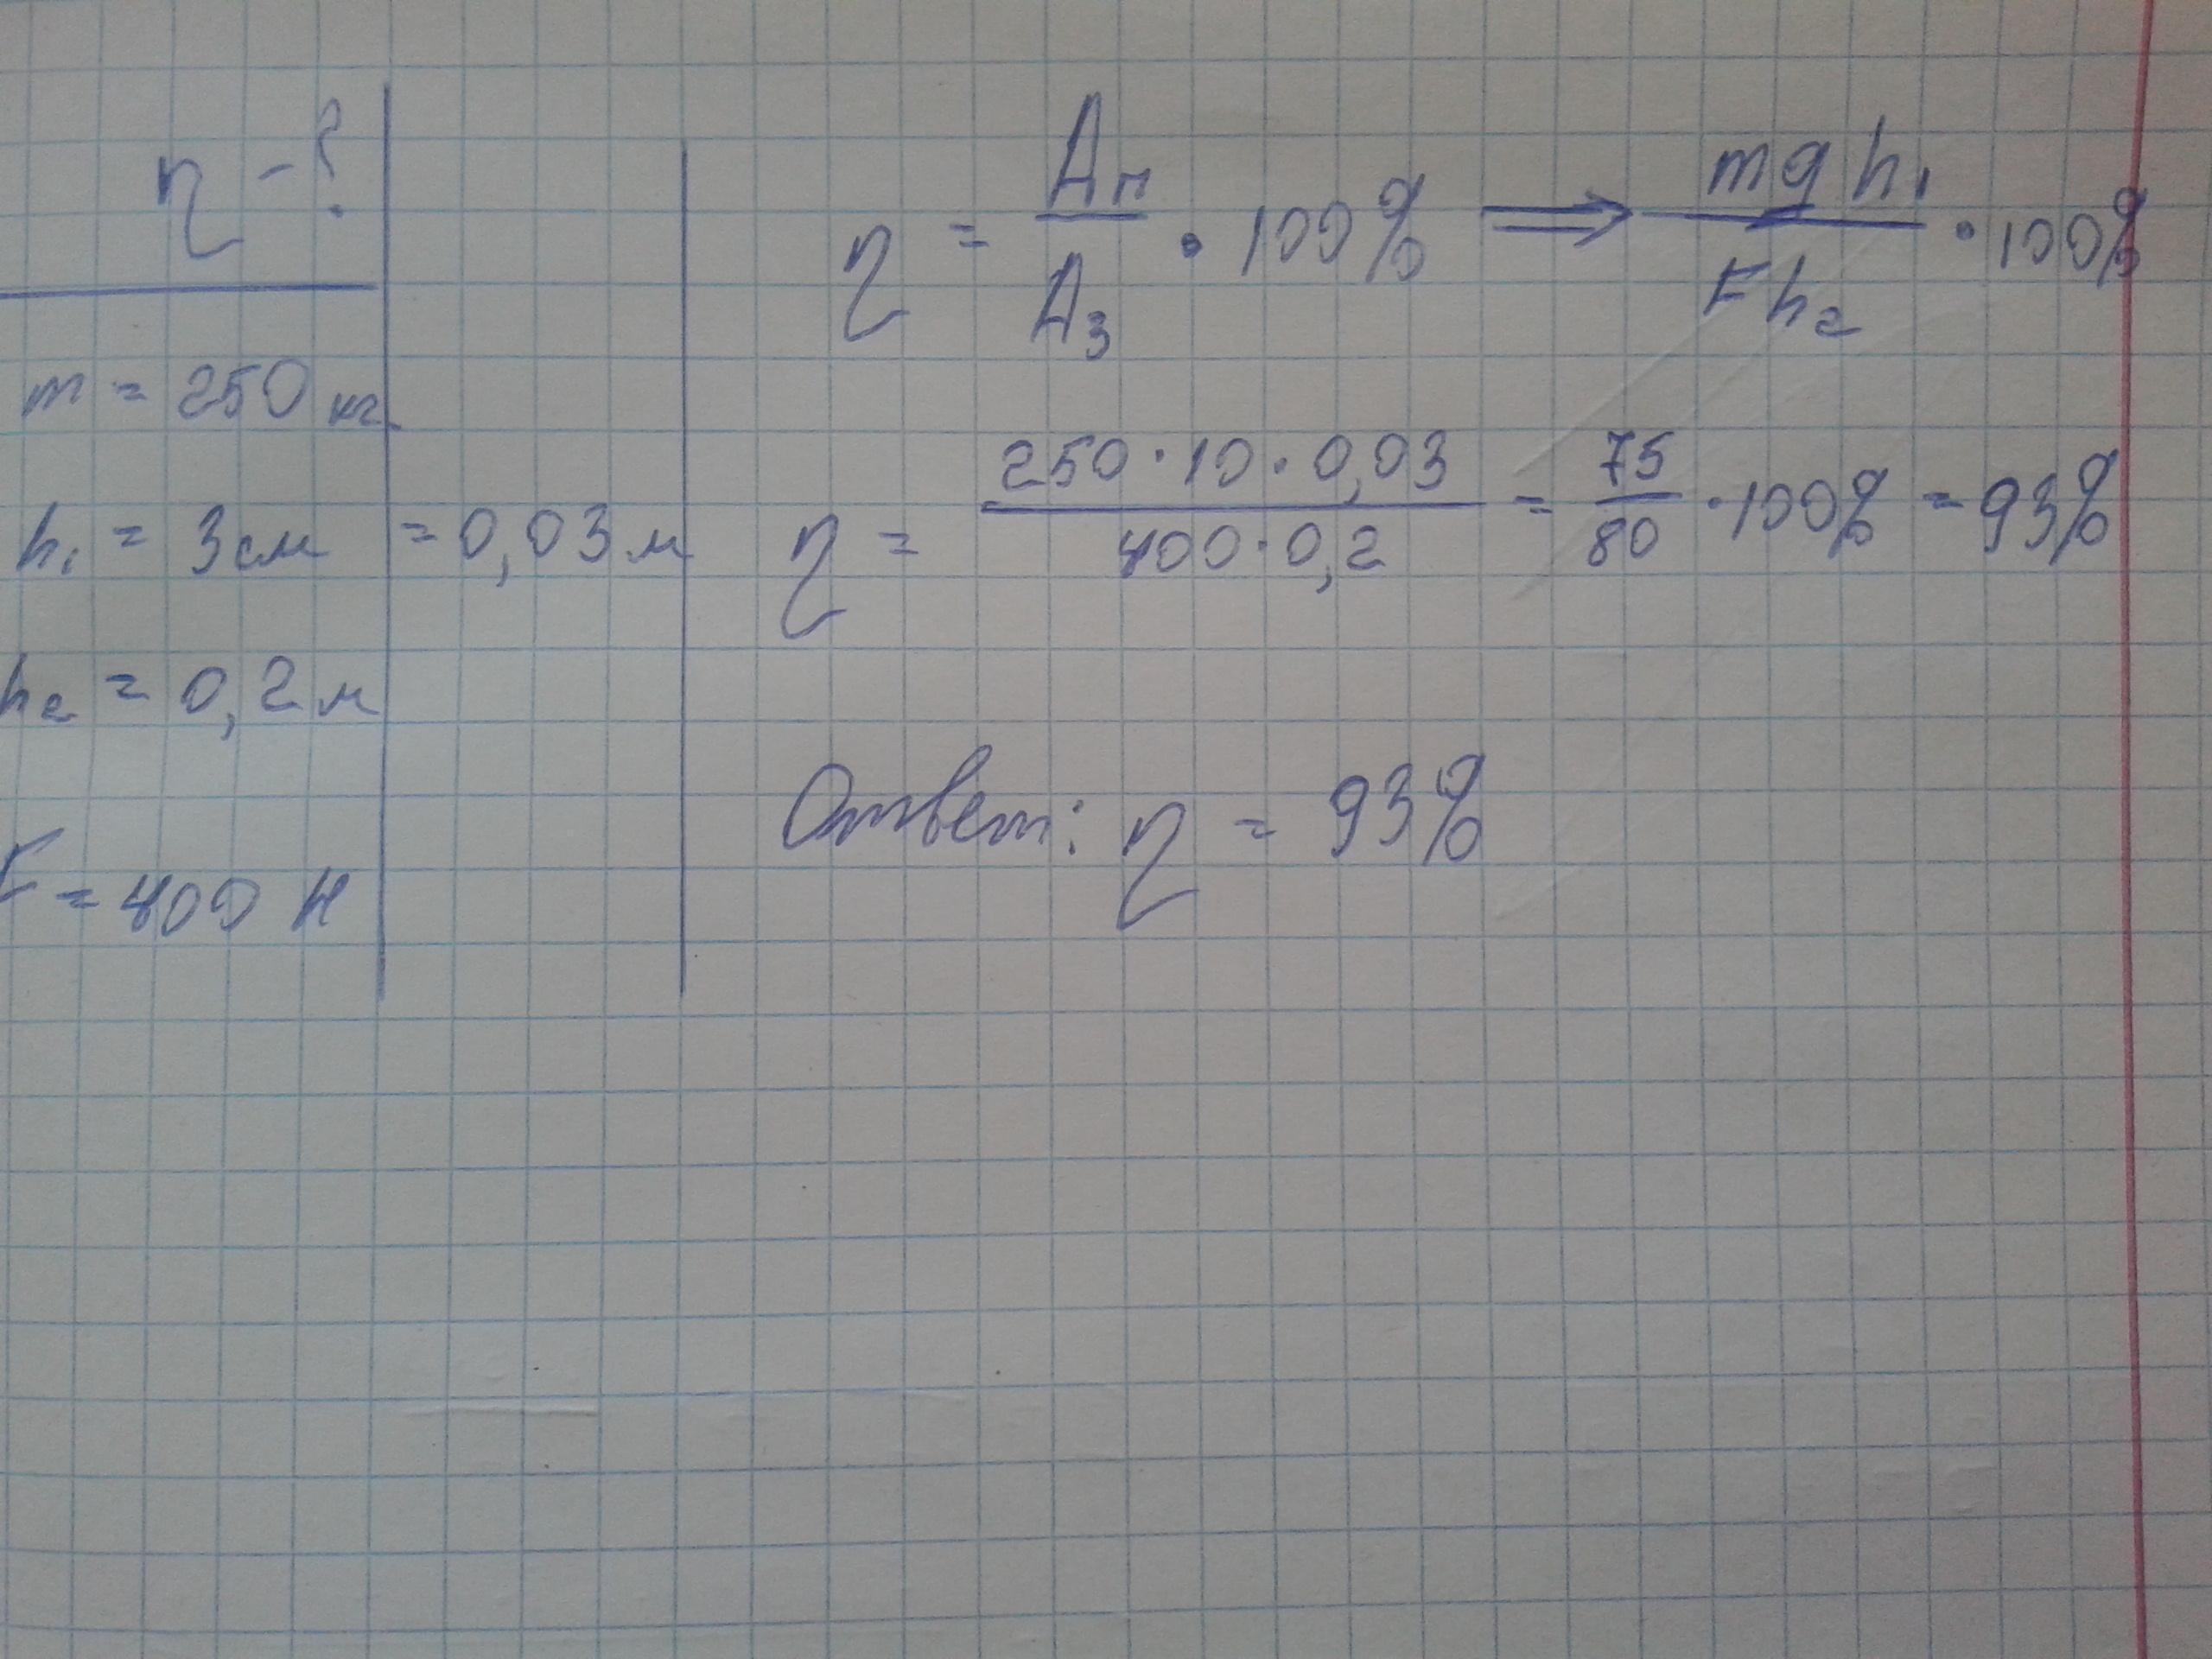 η - ?
m = 250 кг
h₁ = 3 см = 0,03 м
h₂ = 0,2 м
F = 400 Н
η = Aп / Aз · 100% ⟹ mgh₁ / Fh₂ · 100%
η = 250 · 10 · 0,03 / 400 · 0,2 = 75 / 80 · 100% = 93%
Ответ: η = 93%